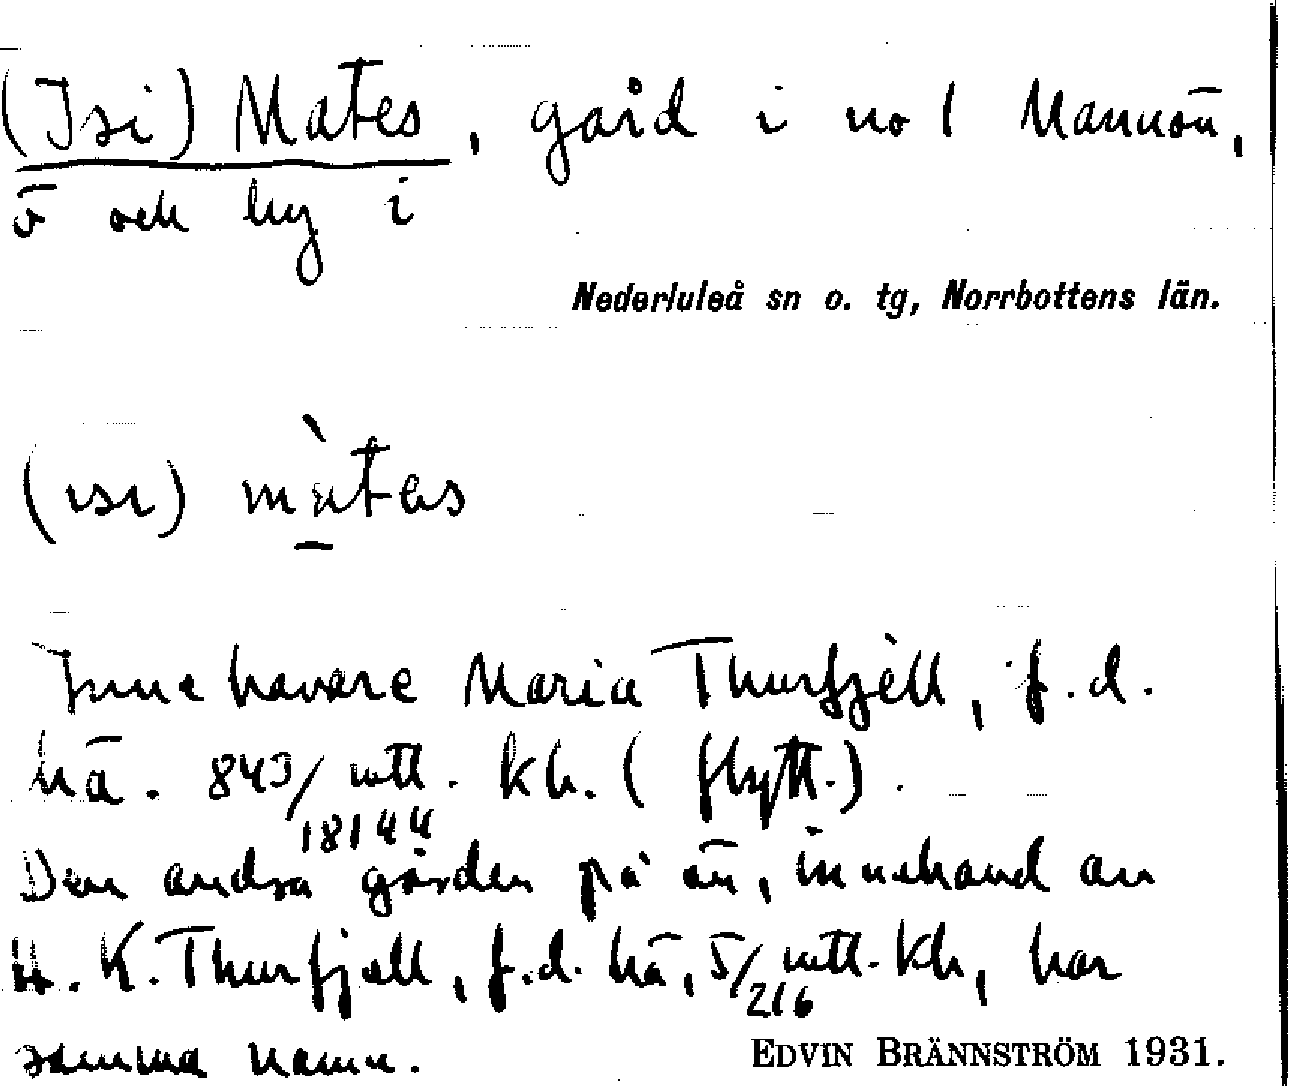 (Isi) Mates, gård i no 1 Mannön,
ö och by i
Nederluleå sn o. tg, Norrbottens län.
(ısı) mὰtes
Innehavare Maria Thurfjell, f.d.
hä. 843/18144 mtl. kh. (flytt.).
Den andra gården på ön, innehavd av
H. K. Thurfjell, f.d. hä, 5/216 mtl. kh, har
samma namn.
EDVIN BRÄNNSTRÖM 1931.